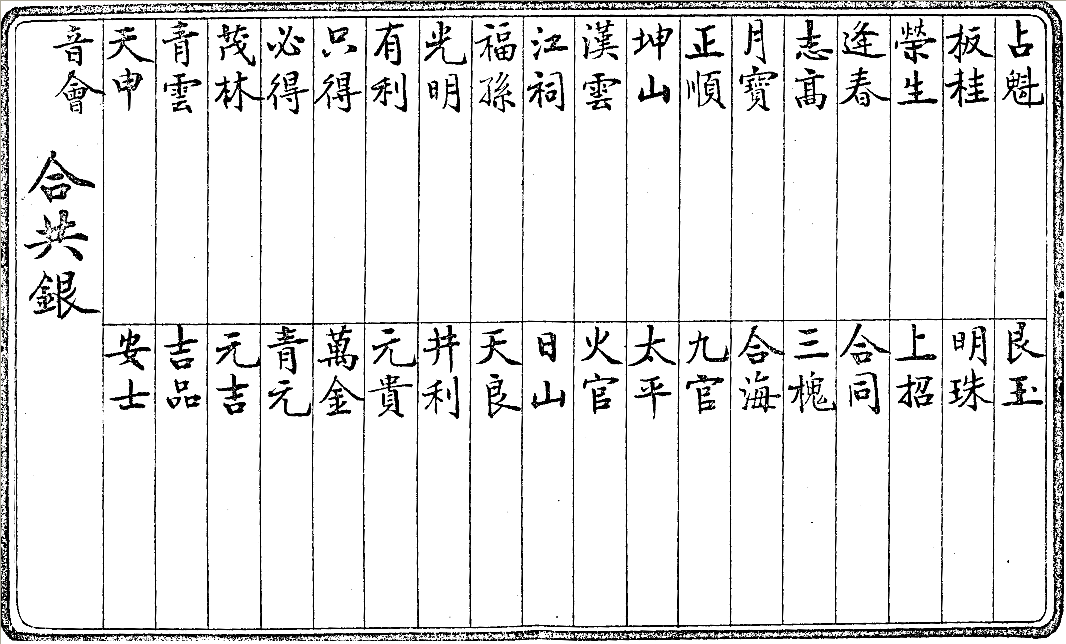 占魁
板桂
榮生
逢春
志高
月寶
正順
坤山
漢雲
江祠
福孫
光明
有利
只得
必得
茂林
青雲
天申
音會
艮玉
明珠
上招
合同
三槐
合海
九官
太平
火官
日山
天良
井利
元貴
萬金
青元
元吉
吉品
安士
合共銀